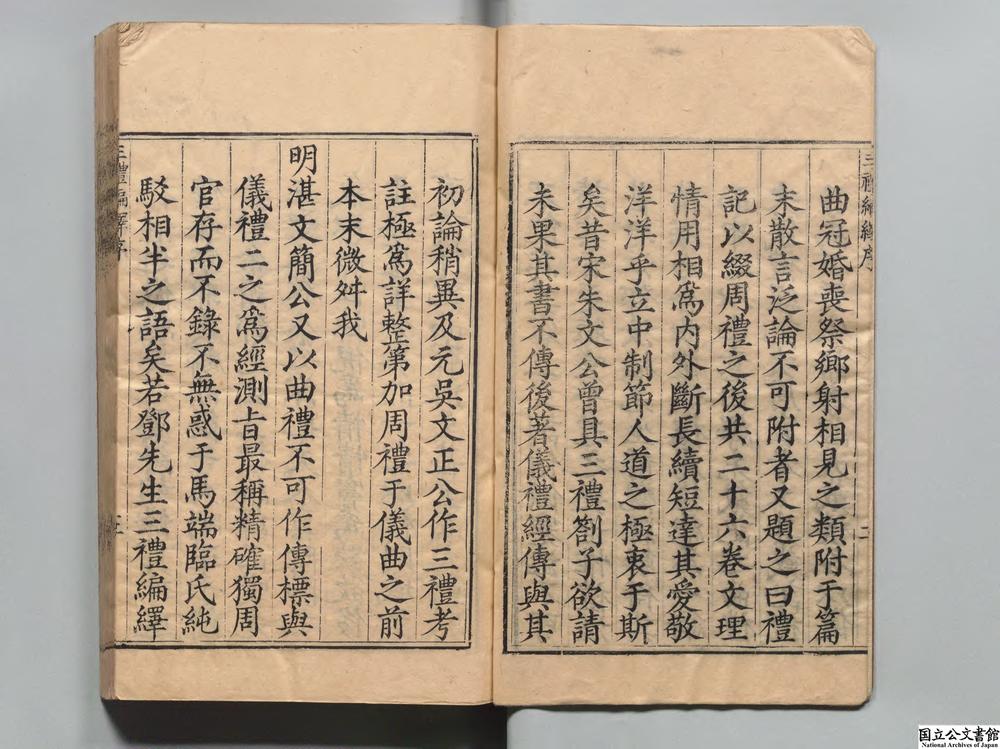 曲冠婚喪祭鄉射相見之類附于篇
末散言泛論不可附者又題之曰禮
記以綴周禮之後共二十六卷文理
情用相爲内外斷長續短達其愛敬
洋洋乎立中制節人道之極衷于斯
矣昔宋朱文公曾具三禮劄子欲請
未果其書不傳後著儀禮經傳與其
初論稍異及元吳文正公作三禮考
註極爲詳整第加周禮于儀曲之前
本末微舛我
明湛文簡公又以曲禮不可作傳標與
儀禮二之爲經測旨最稱精確獨周
官存而不錄不無惑于馬端臨氏純
駁相半之語矣若鄧先生三禮編繹
三禮編繹序
二
三禮編繹序
三
国立公文書館
National Archives of Japan